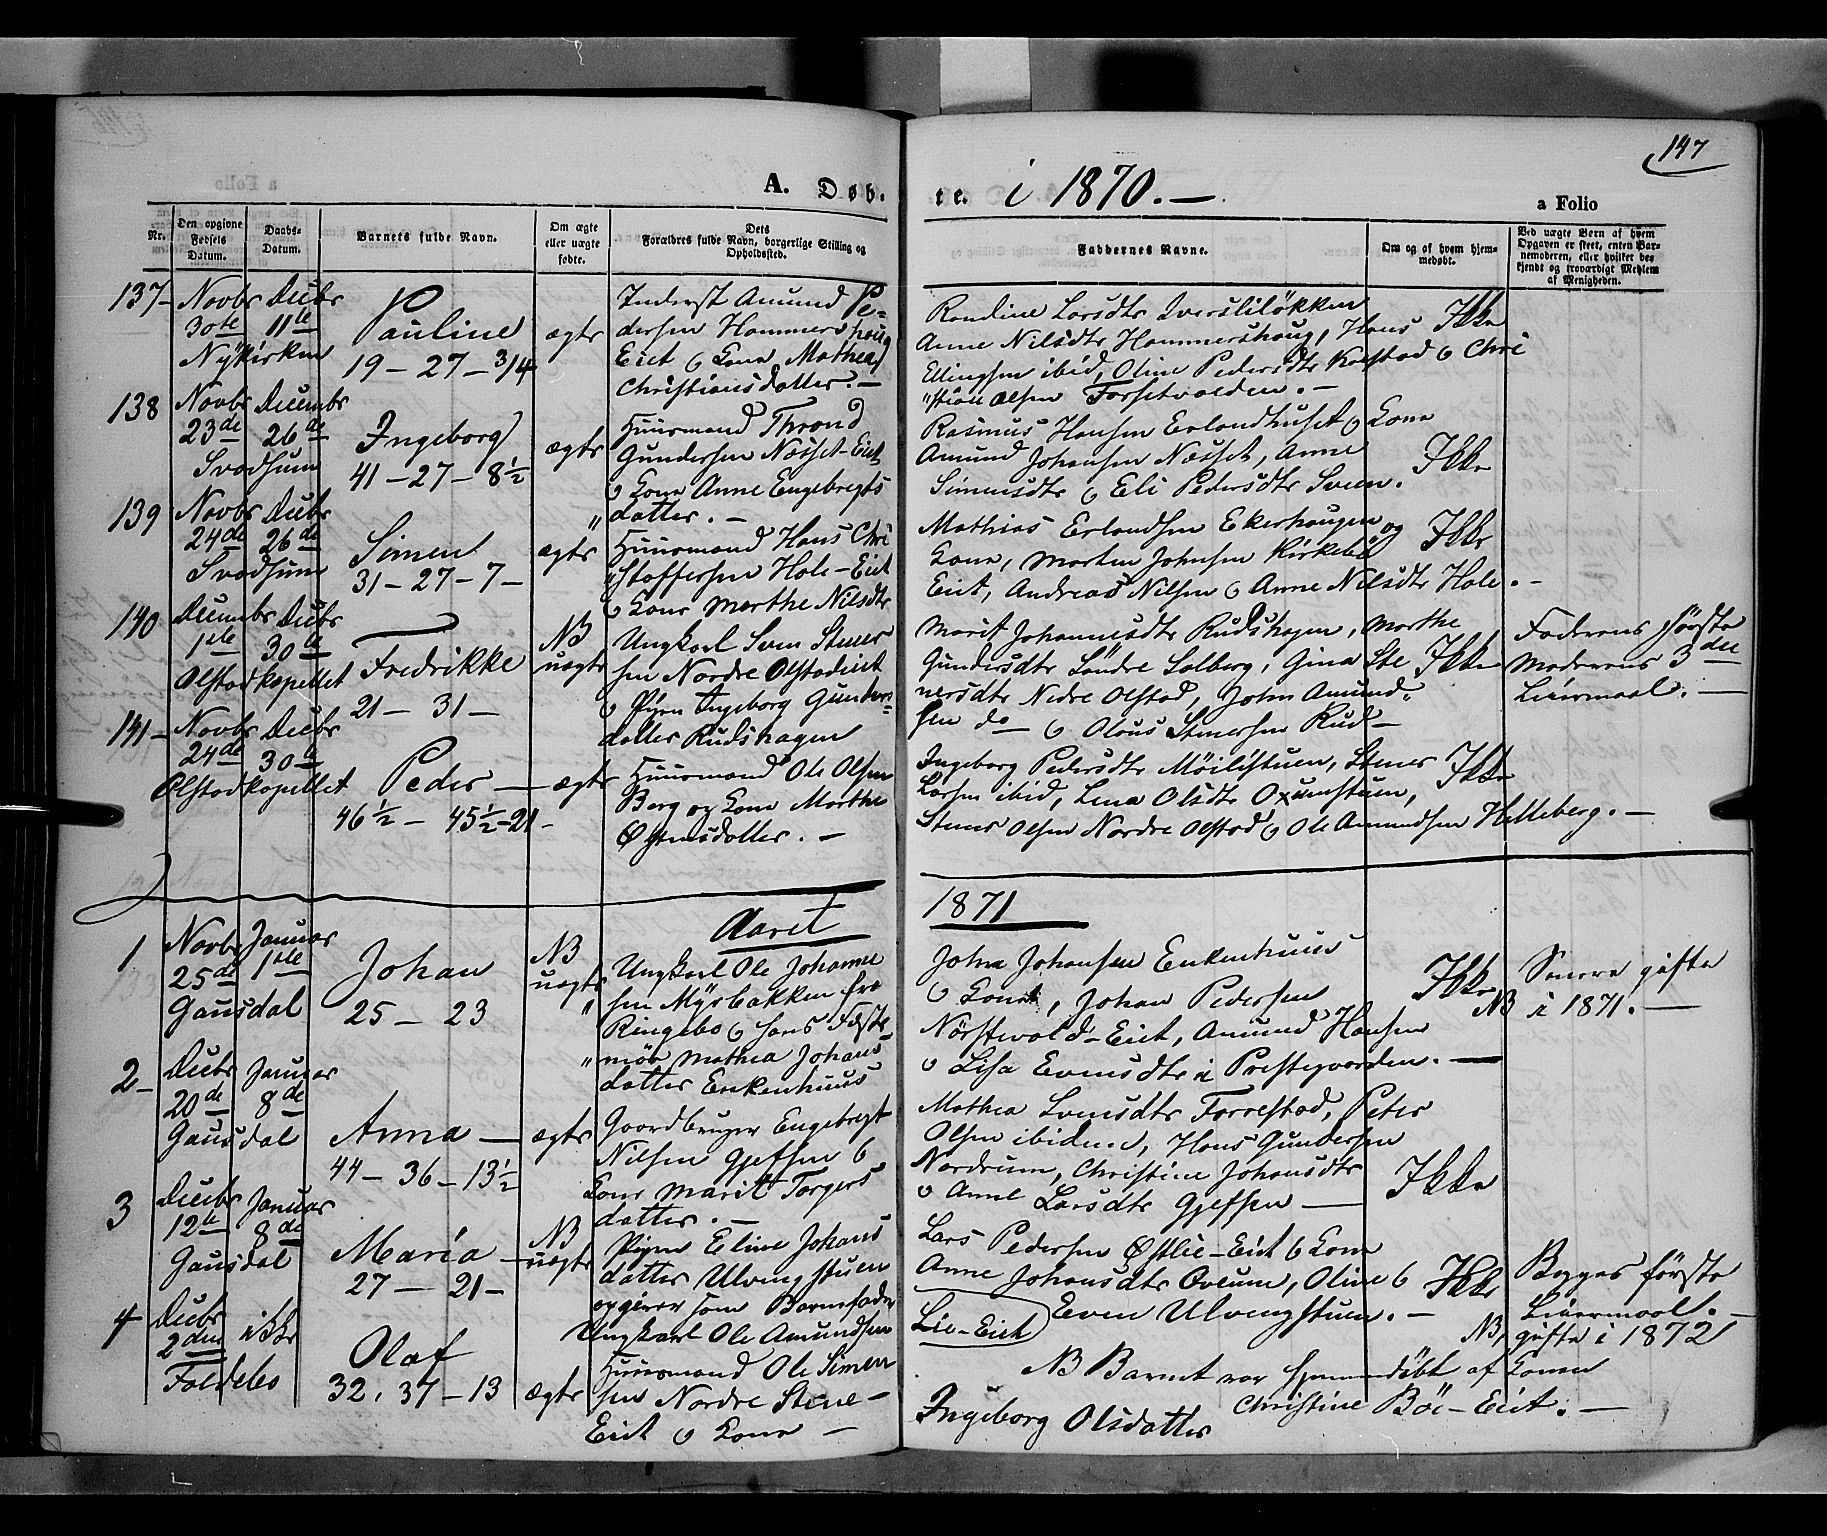 147
A. Døb-
te. i 1870. —
a Folio
Nr.
Den opgivne Fødsels Datum.
Daabs-Datum.
Barnets fulde Navn.
Om ægte eller uægte fødte.
Dets Forældres fulde Navn, borgerlige Stilling og Opholdssted.
Faddernes Navne.
Om og af hvem hjem-medøbt.
Ved uægte Børn af hvem Opgaven er skeet, enten Bar-nemoderen, eller hvilket be-kjendt og troværdigt Medlem af Menigheden.
137-
Novbr
30te
Nykirken
Decbr
11te
Pauline
19 - 27 - 3/4
ægte
Inderst Amund Pe-
dersen Hammershoug
Eiet & Kone Mathea
Christiansdatter. -
Rondine Larsdtr Iversliløkken
Anne Nilsdtr Hammershaug, Hans
Ellingsen ibid, Oline Pedersdtr Kolstad & Chri
"stian Olsen Forsetvolden. -
Ikke
138
Novbr
23de
Svadsum
Decembr
26de
Ingeborg
41 - 27 - 8½
ægte
Huusmand Thrond
Gundersen Næsset-Eiet
& Kone Anne Engebregts
datter. -
Rasmus Hansen Erlandhuset & Kone
Amund Johansen Næsset, Anne
Simensdtr & Eli Pedersdtr Sveen.
Ikke
139
Novbr
24de
Svadsum
Decbr
26de
Simen
31 - 27 - 7 -
ægte
Huusmand Hans Chri
"stoffersen Hole - Eiet
& Kone Marthe Nilsdtr
Mathias Erlandsen Ekerhaugen og
Kone, Morten Johnsen Kirkebø
Eiet, Andreas Nilsen & Anne Nilsdtr Hole. -
Ikke
140
Decembr
1ste
Olstadkapellet
Decbr
30te
Fredrikke
21 - 31 -
NB
uægte
Ungkarl Sven Stener
sen Nordre Olstadeiet
& Pigen Ingeborg Gunder-
datter Rudshagen
Marit Johannesdtr Rudshagen, Marthe
Gundersdtr Søndre Solberg, Gina Ste
nersdtr Nedre Olstad, John Amund-
sen do - & Olaus Stenersen Rud -
Ikke
Faderens første
Moderens 3die
Leiermaal. -
141 -
Novbr
24de
Olstadkapellet
Decbr
30te
Peder -
46½ - 45½ - 21 -
ægte
Huusmand Ole Olsen
Berg og Kone Marthe
Østensdatter. -
Ingeborg Pedersdtr Møilistuen, Stener
Larsen ibid, Lena Olsdtr Oxumstuen,
Stener Olsen Nordre Olstad & Ole Amundsen Helleberg. -
Ikke
Aaret
1871
1
Novbr
25de
Gausdal
Januar
1ste
Johan
25 - 23
NB
uægte
Ungkarl Ole Johanne
sen Myrbakken fra
Ringebo & hans Fæste
mø Mathea Johans-
datter Enkenhuus
John Johansen Enkenhuus
& Kone, Johan Pedersen
Nørstevold - Eiet, Amund Hansen
& Lisa Evensdtr i Prestegaarden. -
Ikke
Senere gifte
NB i 1871. -
2 -
Decbr
20de
Gausdal
Januar
8de
Anna -
44 - 36 - 13½
ægte
Gaardbruger Engebregt
Nilsen Gjefsen &
Kone Marit Torgers
datter. -
Mathea Svensdtr Forrestad, Peter
Olsen ibidem, Hans Gundersen
Nordrum, Christine Johansdtr
& Anne Larsdtr Gjefsen -
Ikke
3
Decbr
12te
Gausdal
Januar
8de
Maria -
27 - 21 -
NB
uægte
Pigen Eline Johans
datter Ulvengstuen
opgiver som Barnefader
Ungkarl Ole Amundsen
Lie - Eiet
Lars Pedersen Østlie - Eiet & Kone
Anne Johansdtr Oveum, Oline &
Even Ulvengstuen. -
Ikke
Begges første
Leiermaal. -
NB, gifte i 1872
4
Decbr
2den
Foldebo
ikke
Olaf
32, 37 - 13
ægte
Huusmand Ole Simen
sen Nordre Stene -
Eiet & Kone -
Ingeborg Olsdatter
NB Barnet var hjemmedøbt af Konen
Christine Bøe - Eiet. -